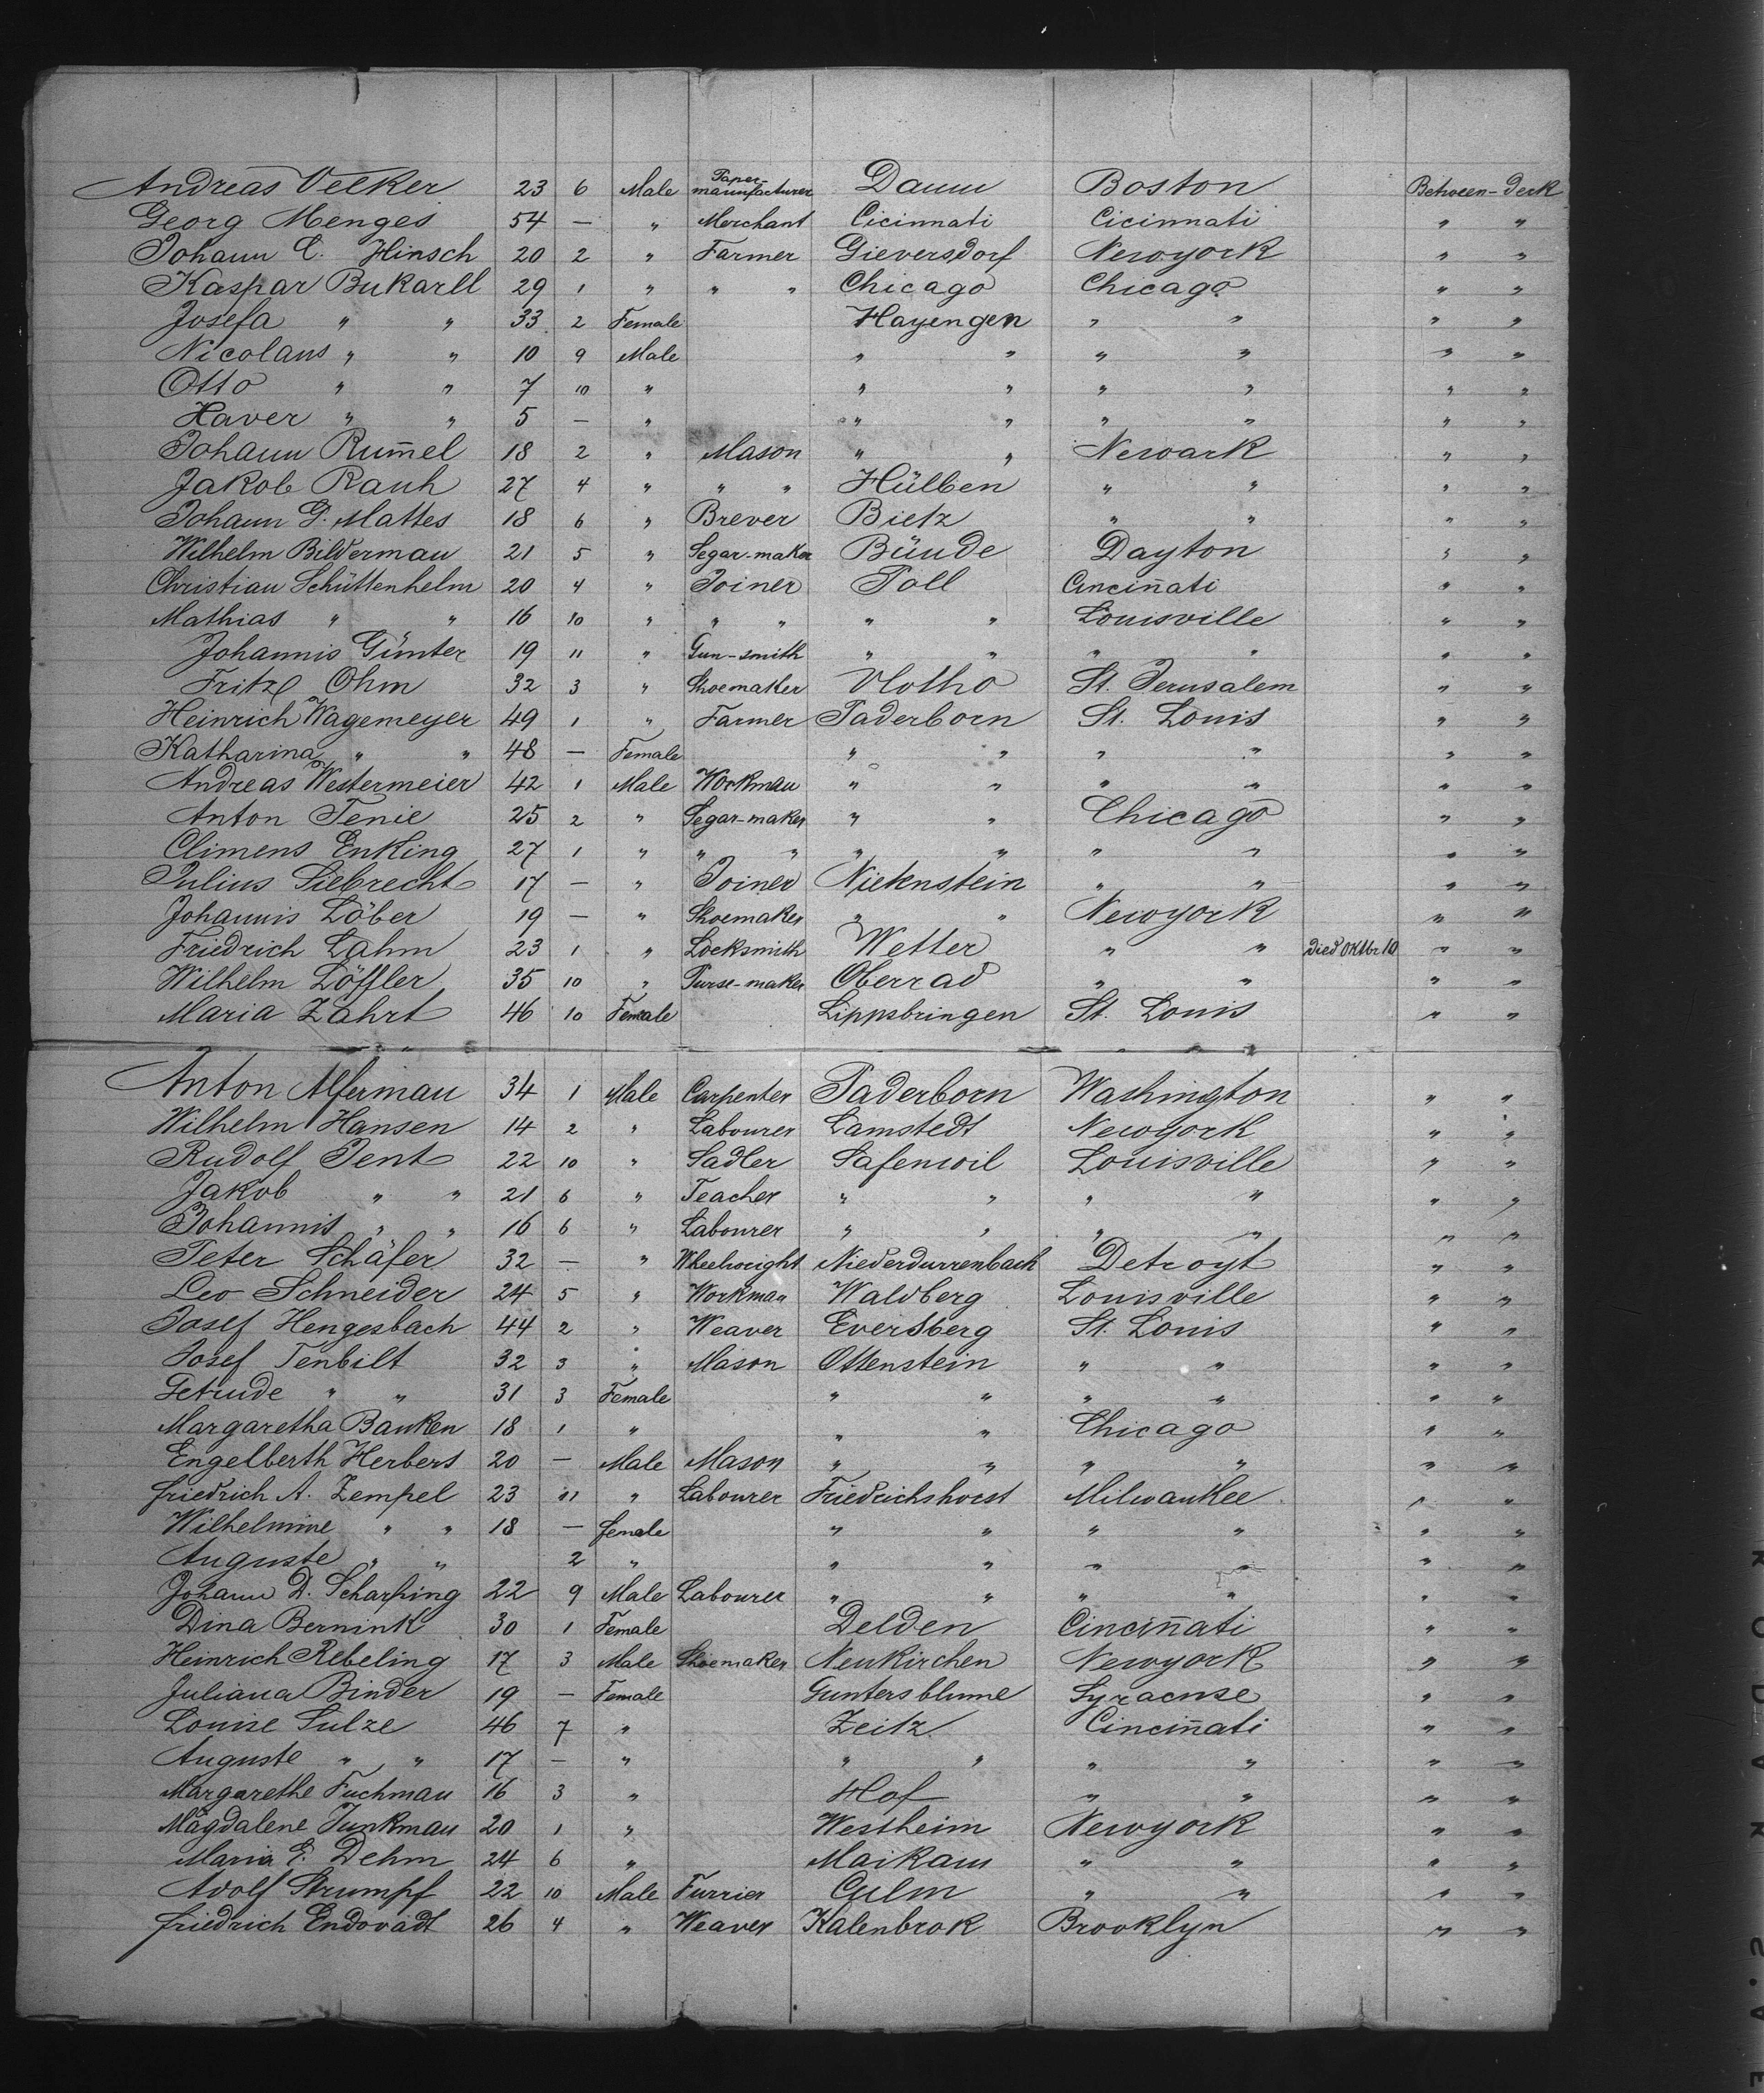 Andreas Oelker 23 6 Male Paper-manufacturer Daun Boston Between-deck
Georg Menges 54 — " Merchant Cicinnati Cicinnati " "
Johann C. Hinsch 20 2 " Farmer Gieversdorf Newyork " "
Kaspar Bukarll 29 1 " " " Chicago Chicago " "
Josefa " " 33 2 Female Hayengen " " " "
Nicolaus " " 10 9 Male " " " " " "
Otto " " 7 10 " " " " " " "
Xaver " " 5 — " " " " " " "
Johann Rum̄el 18 2 " Mason " " Newark " "
Jakob Rauh 27 4 " " " Hülben " " " "
Johann G. Mattes 18 6 " Brever Bietz " " " "
Wilhelm Bilderman 21 5 " Segar-maker Bünde Dayton " "
Christian Schüttenhelm 20 4 " Joiner Poll Cincin̄ati " "
Mathias " " 16 10 " " " " " Louisville " "
Johannis Günter 19 11 " Gun-smith " " " " " "
Fritz Ohm 32 3 " Shoemaker Vlotho St. Jerusalem " "
Heinrich Wagemeyer 49 1 " Farmer Paderborn St. Louis " "
Katharina " " 48 — Female " " " " " "
Andreas Westermeier 42 1 Male Workman " " " " " "
Anton Tenie 25 2 " Segar-maker " " Chicago " "
Climens Enking 27 1 " " " " " " " " "
Julius Siebrecht 17 — " Joiner Nietenstein " " " "
Johannis Löber 19 — " Shoemaker " " Newyork " "
Friedrich Lahm 23 1 " Locksmith Wetter " " died Oktbr 10 " "
Wilhelm Löffler 35 10 " Purse-maker Oberrad " " " "
Maria Zahrt 46 10 Female Lippsbringen St. Louis " "
Anton Alferman 34 1 Male Carpenter Paderborn Washington " "
Wilhelm Hansen 14 2 " Labourer Lamstedt Newyork " "
Rudolf Jent 22 10 " Sadler Safenwil Louisville " "
Jakob " " 21 6 " Teacher " " " " " "
Johannis " " 16 6 " Labourer " " " " " "
Peter Schäfer 32 — " Wheelwright Niederdurrenbach Detroyt " "
Leo Schneider 24 5 " Workman Waldberg Louisville " "
Josef Hengesbach 44 2 " Weaver Eversberg St. Louis " "
Josef Tenbilt 32 3 " Mason Ottenstein " " " "
Getrude " " 31 3 Female " " " " " "
Margaretha Banken 18 1 " " " Chicago " "
Engelberth Herbers 20 — Male Mason " " " " " "
Friedrich A. Zempel 23 11 " Labourer Friedrichshorst Milwaukee " "
Wilhelmine " " 18 — female " " " " " "
Auguste " " 2 " " " " " " "
Johann D. Scharping 22 9 Male Labourer " " " " " "
Dina Bernink 30 1 Female Delden Cincin̄ati " "
Heinrich Rebeling 17 3 Male Shoemaker Neukirchen Newyork " "
Juliana Binder 19 — Female Guntersblume Syracuse " "
Louise Sulze 46 7 " Zeitz Cincin̄ati " "
Auguste " " 17 — " " " " " " "
Margarethe Fuchman 16 3 " Hof " " " "
Magdalene Junkman 20 1 " Westheim Newyork " "
Maria E. Dehm 24 6 " Maikam " " " "
Adolf Strumpf 22 10 Male Furrier Culm " " " "
Friedrich Endovadt 26 4 " Weaver Kalenbrok Brooklyn " "